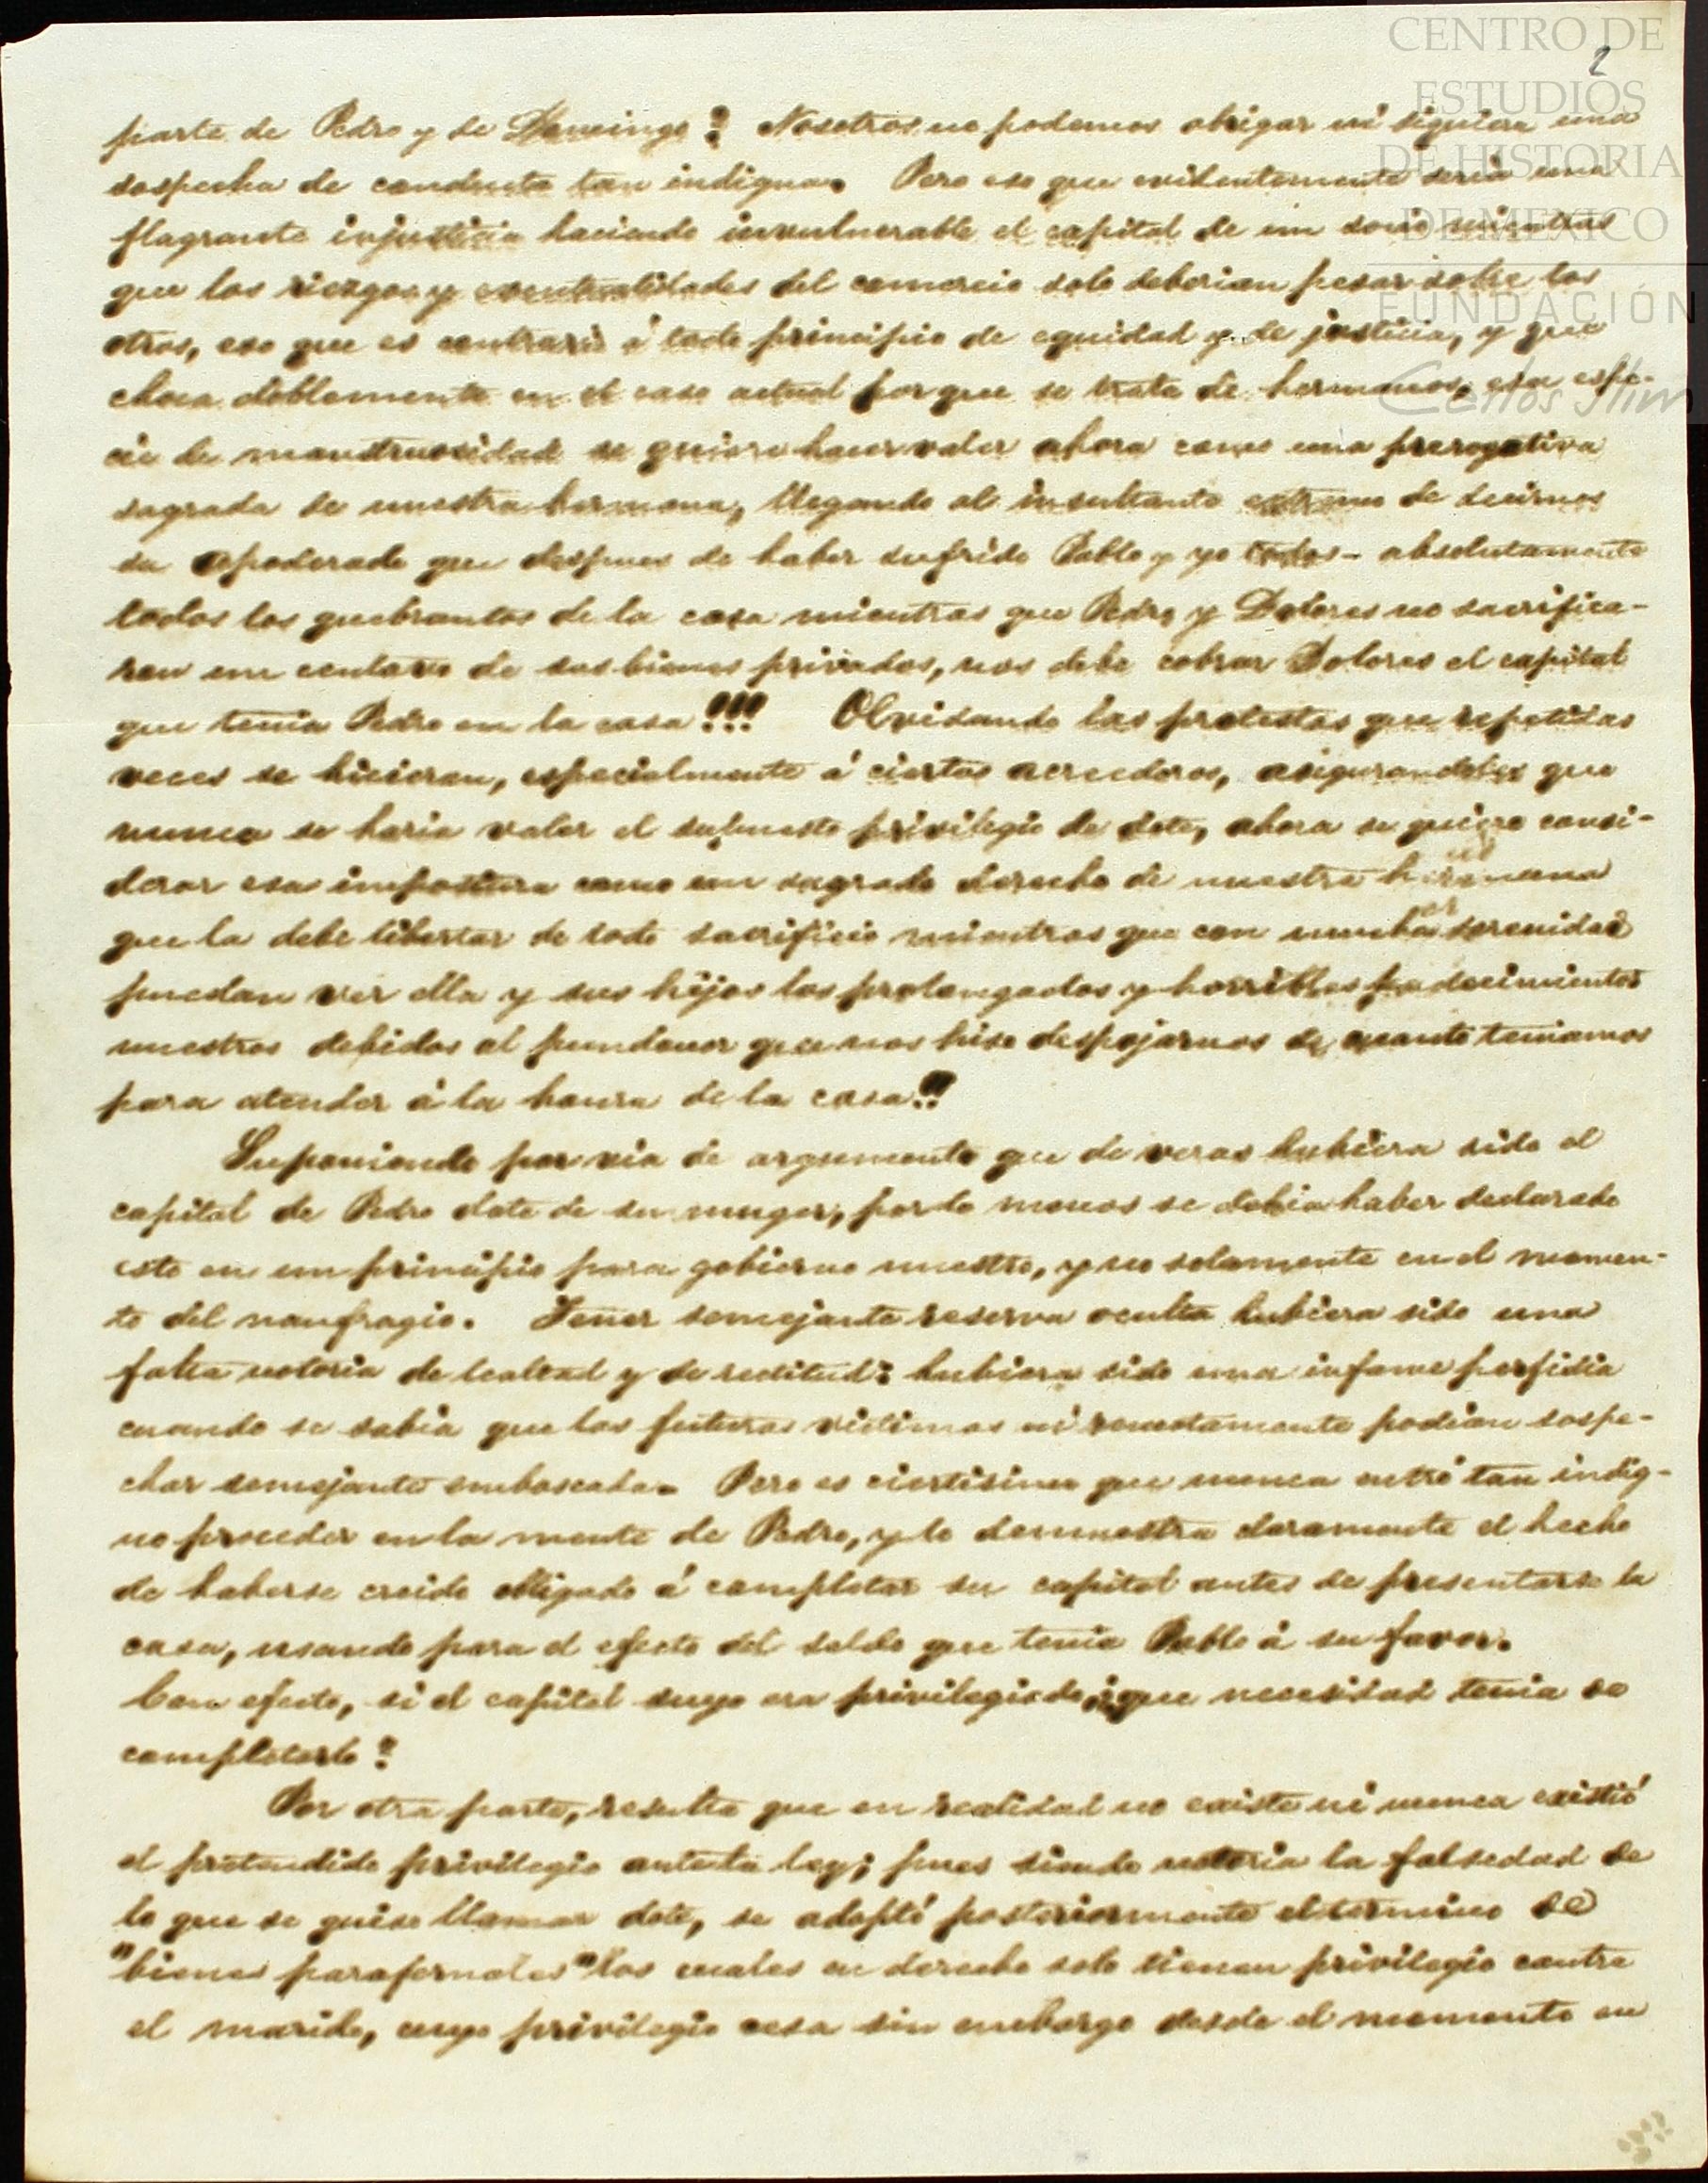 CENTRO DE
ESTUDIOS
DE HISTORIA
DE MEXICO
FUNDACIÓN
Carlos Slim
2
parte de Pedro y de Domingo? Nosotros no podemos abrigar ni siquiera una
sospecha de conducta tan indigna. Pero eso que evidentemente seria una
flagrante injusticia haciendo invulnerable el capital de un socio mientras
que los riezgos y eventualidades del comercio solo deberian pesar sobre los
otros, eso que es contrario á todo principio de equidad y de justicia, y que
choca doblemente en el caso actual porque se trata de hermanos, esa espe-
cie de monstruosidad se quiere hacer valer ahora como una prerogativa
sagrada de nuestra hermana, llegando al insultante extremo de decirnos
su apoderado que despues de haber sufrido Pablo y yo todos - absolutamente
todos los quebrantos de la casa mientras que Pedro y Dolores no sacrifica-
ron un centavo de sus bienes privados, nos debe cobrar Dolores el capital
que tenia Pedro en la casa!!! Olvidando las protestas que repetidas
veces se hicieran, especialmente á ciertos acreedores, asigurandoles que
nunca se haria valer el supuesto privilegio de dote, ahora se quiere consi-
derar esa impostura como un sagrado derecho de nuestra hermana
que la debe libertar de todo sacrificio mientras que con mucha serenidad
puedan ver ella y sus hijos los prolongados y horribles padecimientos
nuestros debidos al pundonor que nos hiso despojarnos de cuanto teniamos
para atender á la honra de la casa!!
Suponiendo por via de argumento que de veras hubiera sido el
capital de Pedro dote de su muger, por lo menos se debia haber declarado
esto en un principio para gobierno nuestro, y no solamente en el momen-
to del naufragio. Tener semejante reserva oculta hubiera sido una
falta notoria de lealtad y de rectitud: hubiera sido una infame perfidia
cuando se sabia que las futuras victimas ni remotamente podian sospe-
char semejante emboscada. Pero es ciertisimo que nunca entró tan indig-
no proceder en la mente de Pedro, y lo demuestra claramente el hecho
de haberse creido obligado á completar su capital antes de presentarse la
casa, usando para el efecto del saldo que tenia Pablo á su favor.
Con efecto, si el capital suyo era privilegiado, ¿que necesidad tenia de
completarlo?
Por otra parte, resulta que en realidad no existe ni nunca existió
el pretendido privilegio ante la ley; pues siendo notoria la falsedad de
lo que se quiso llamar dote, se adoptó posteriormente el termino de
"bienes parafernales" los cuales en derecho solo tienen privilegio contra
el marido, cuyo privilegio cesa sin embargo desde el momento en